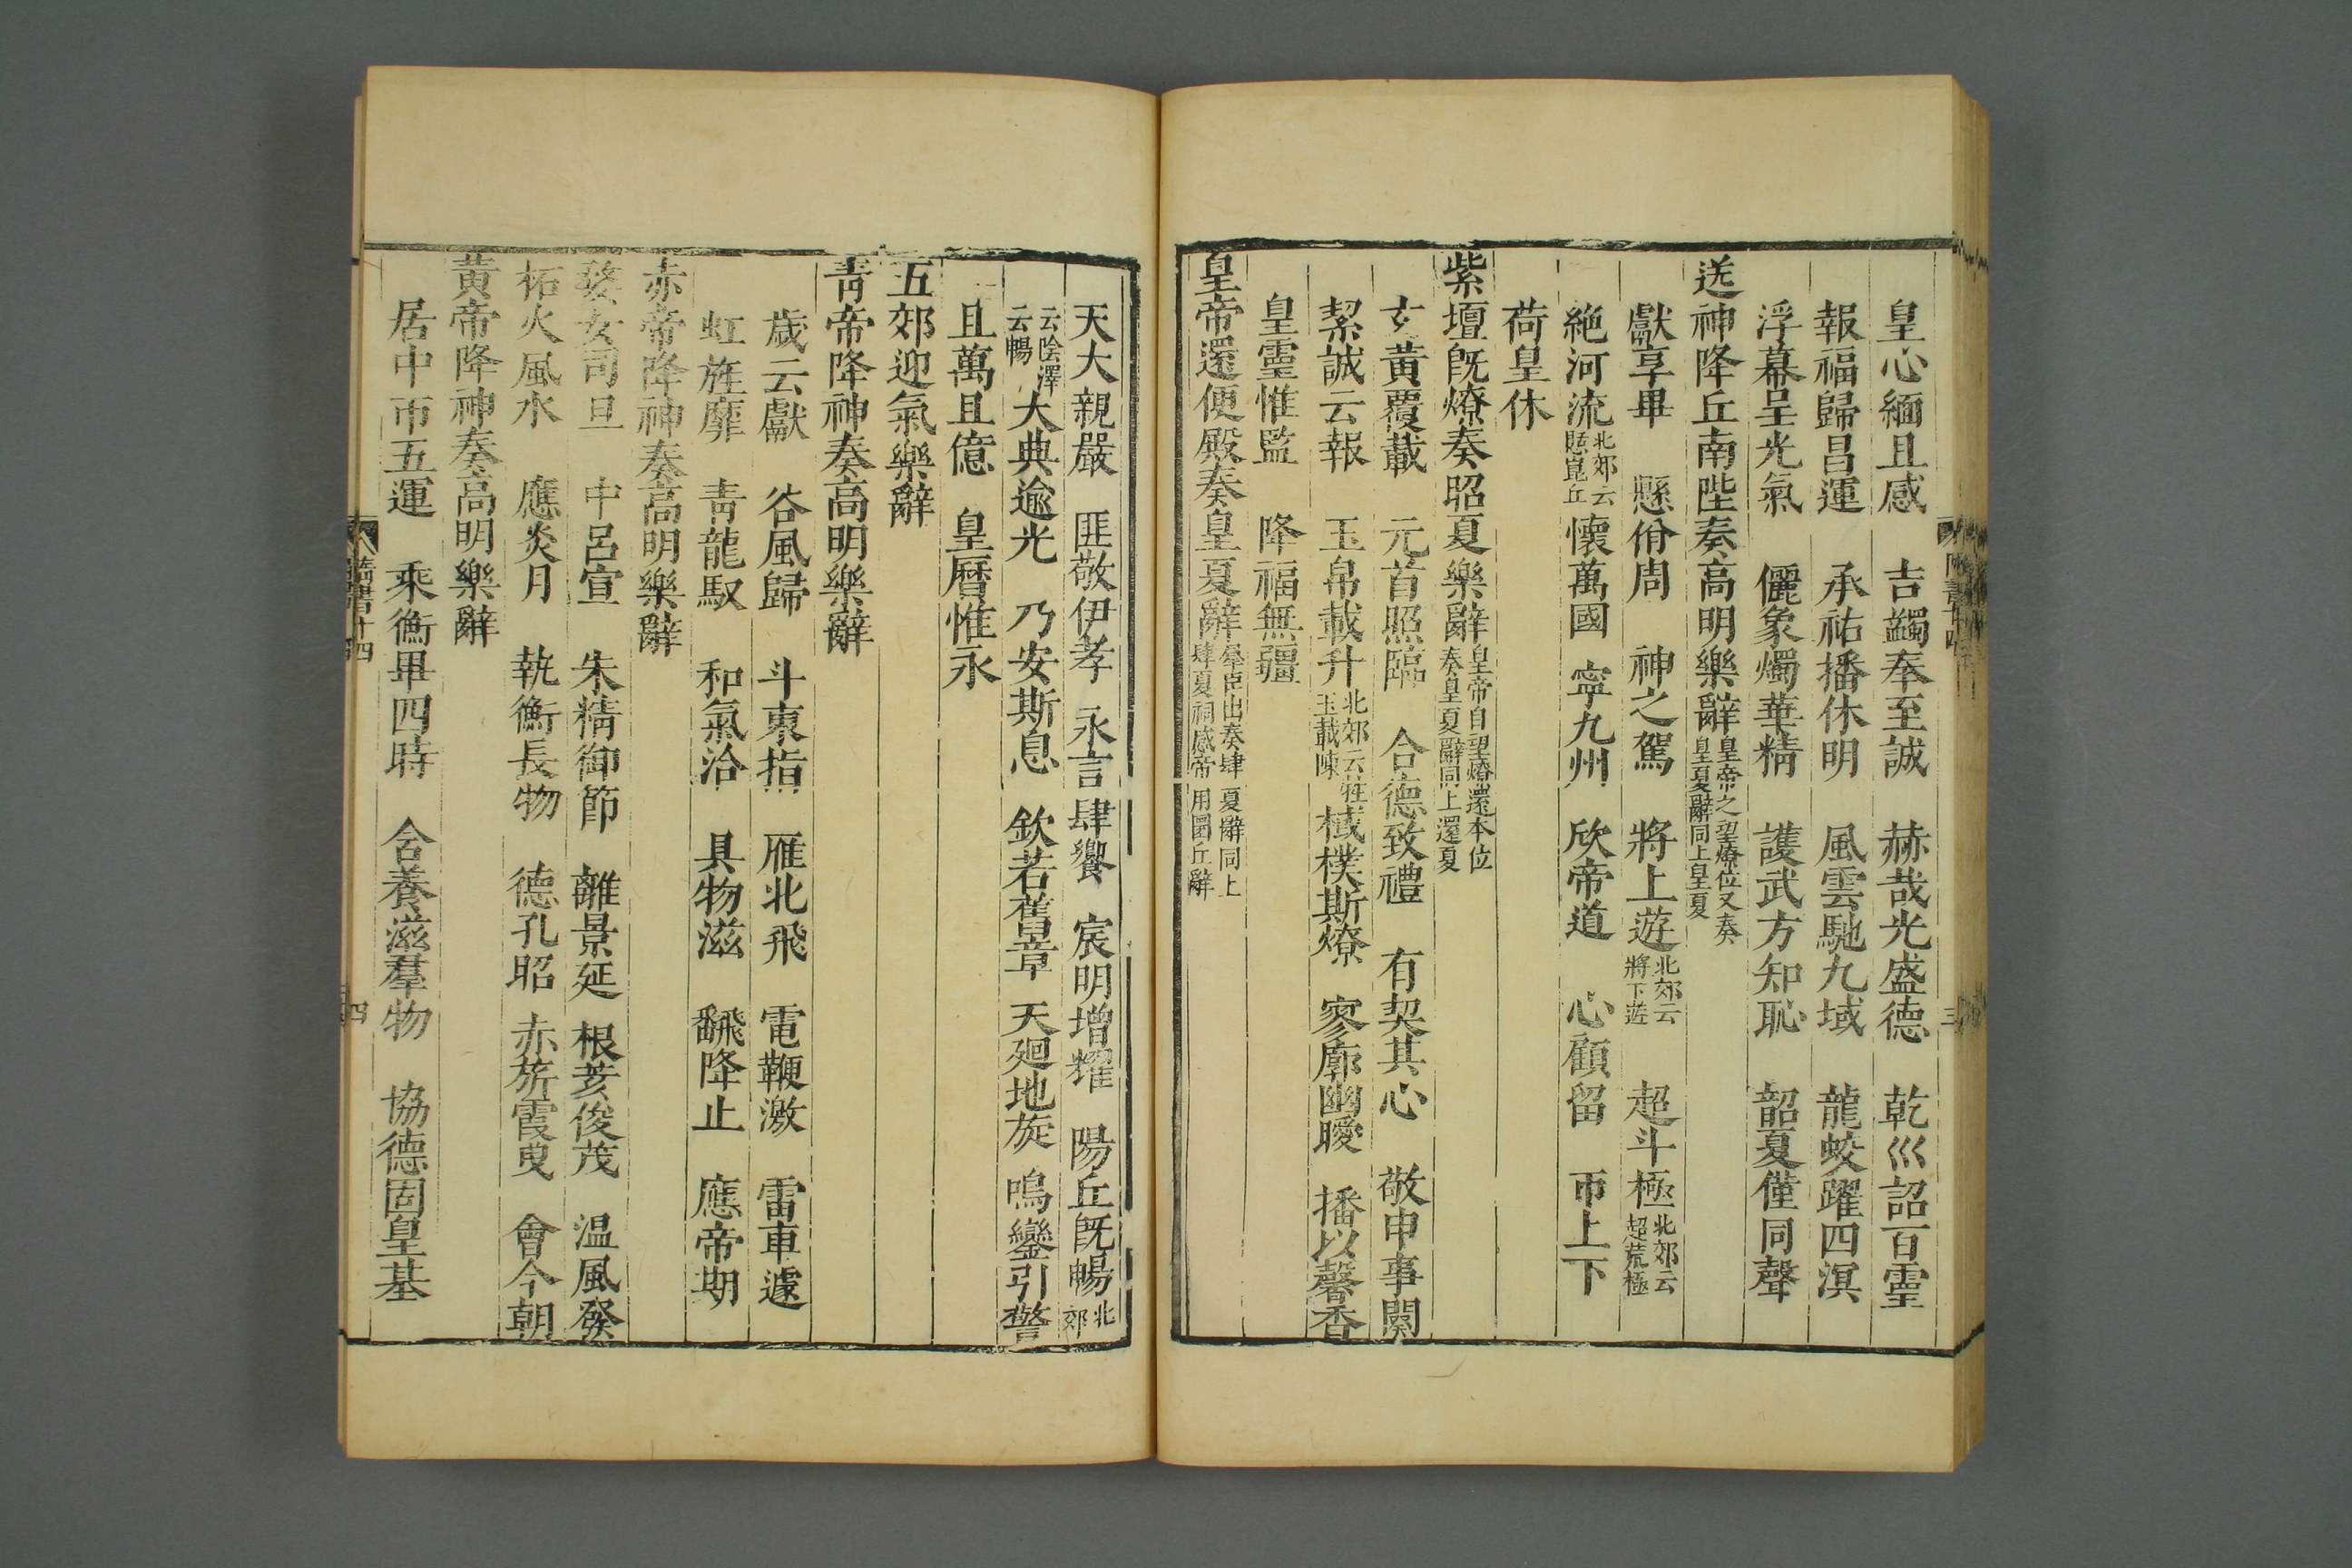 皇心緬且感 吉蠲奉至誠 赫哉光盛德 乾巛詔百靈
報福歸昌運 承祐播休明 風雲馳九域 龍蛟躍四溟
浮幕呈光氣 儷象燭華精 護武方知恥 韶夏僅同聲
送神降丘南陛奏高明樂辭皇帝之望燎位又奏皇夏辭同上皇夏
獻享畢 懸佾周 神之駕 將上遊北郊云將下遊 超斗極北郊云超荒極
絶河流北郊云懸崑丘 懷萬國 寧九州 欣帝道 心顧留 帀上下
荷皇休
紫壇旣燎奏昭夏樂辭皇帝自望燎還本位奏皇夏辭同上還夏
玄黃覆載 元首照臨 合德致禮 有契其心 敬申事闋
絜誠云報 玉帛載升北郊云牲玉載陳 棫樸斯燎 寥廓幽曖 播以馨香
皇靈惟監 降福無疆
皇帝還便殿奏皇夏辭羣臣出奏肆夏辭同上肆夏祠感帝用圜丘辭
天大親嚴 匪敬伊孝 永言肆饗 宸明增耀 陽丘旣暢北郊
云陰澤云暢 大典逾光 乃安斯息 欽若舊章 天廻地旋 鳴鑾引警
且萬且億 皇曆惟永
五郊迎氣樂辭
靑帝降神奏高明樂辭
歲云獻 谷風歸 斗東指 雁北飛 電鞭激 雷車遽
虹旌靡 靑龍馭 和氣洽 具物滋 飜降止 應帝期
赤帝降神奏高明樂辭
婺女司旦 中呂宣 朱精御節 離景延 根荄俊茂 温風發
柘火風水 應炎月 執衡長物 德孔昭 赤旂霞曳 會今朝
黄帝降神奏高明樂辭
居中帀五運 乘衡畢四時 含養滋羣物 協德固皇基